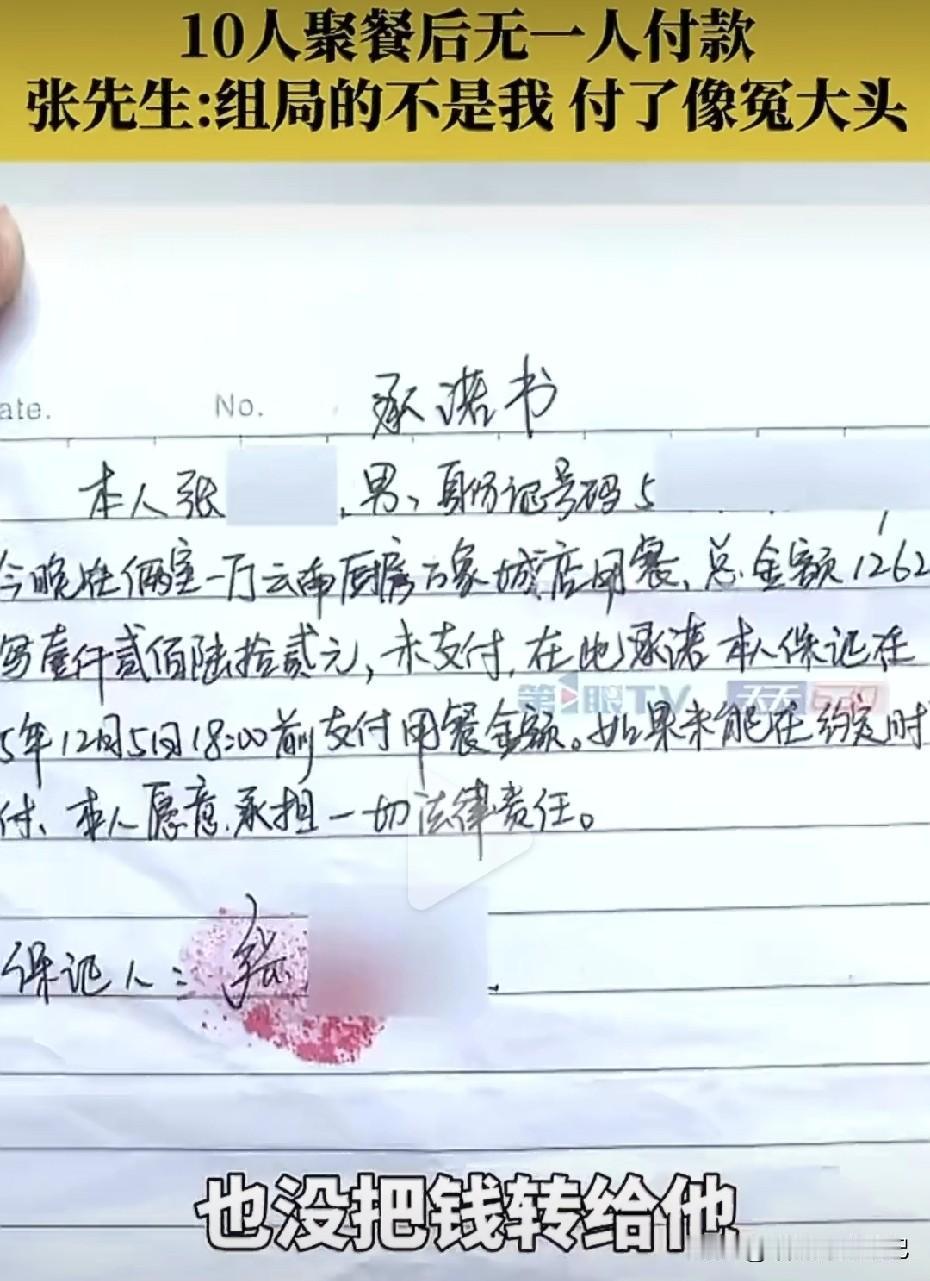 10人聚餐后无一人付款
张先生:组局的不是我 付了像冤大头
ate.
No.
承诺书
本人张 ,男,身份证号码5
今晚在俩室一厅云南厨房万象城店用餐、总金额1262
写壹仟贰佰陆拾贰元,未支付,在此承诺本人保证在
第1眼TV
5年12月5日18:00前支付用餐金额。如果未能在约定时
付、本人愿意承担一切法律责任。
保证人:张
也没把钱转给他